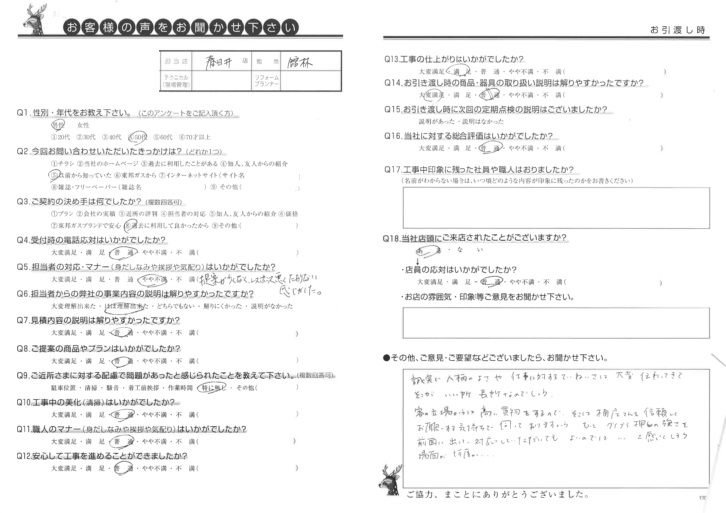 お客様の声をお聞かせ下さい
担当店 春日井 店 担当 館林
テクニカル(現場管理) リフォームプランナー
Q1.性別・年代をお教え下さい。(このアンケートをご記入頂く方)
男性 女性
①20代 ②30代 ③40代 ④50代 ⑤60代 ⑥70才以上
Q2.今回お問い合わせいただいたきっかけは?(どれか1つ)
①チラシ ②当社のホームページ ③過去に利用したことがある ④知人、友人からの紹介
⑤以前から知っていた ⑥東邦ガスから ⑦インターネットサイト(サイト名 )
⑧雑誌・フリーペーパー(雑誌名 ) ⑨その他( )
Q3.ご契約の決め手は何でしたか?(複数回答可)
①プラン ②会社の実績 ③近所の評判 ④担当者の対応 ⑤知人、友人からの紹介 ⑥価格
⑦東邦ガスブランドで安心 ⑧過去に利用して良かったから ⑨その他( )
Q4.受付時の電話応対はいかがでしたか?
大変満足・満 足・普 通・やや不満・不 満( )
Q5.担当者の対応・マナー(身だしなみや挨拶や気配り)はいかがでしたか?
大変満足・満 足・普 通・やや不満・不 満(
Q6.担当者からの弊社の事業内容の説明は解りやすかったですか?
大変理解出来た・ほぼ理解出来た・どちらでもない・解りにくかった・説明がなかった
Q7.見積内容の説明は解りやすかったですか?
大変満足・満 足・普 通・やや不満・不 満( )
Q8.ご提案の商品やプランはいかがでしたか?
大変満足・満 足・普 通・やや不満・不 満( )
Q9.ご近所さまに対する配慮で問題があったと感じられたことを教えて下さい。(複数回答可)
駐車位置・清掃・騒音・着工前挨拶・作業時間・特に無し・その他( )
Q10.工事中の美化(清掃)はいかがでしたか?
大変満足・満 足・普 通・やや不満・不 満( )
Q11.職人のマナー(身だしなみや挨拶や気配り)はいかがでしたか?
大変満足・満 足・普 通・やや不満・不 満( )
Q12.安心して工事を進めることができましたか?
大変満足・満 足・普 通・やや不満・不 満( )
お引渡し時
Q13.工事の仕上がりはいかがでしたか?
大変満足・満 足・普 通・やや不満・不 満( )
Q14.お引き渡し時の商品・器具の取り扱い説明は解りやすかったですか?
大変満足・満 足・普 通・やや不満・不 満( )
Q15.お引き渡し時に次回の定期点検の説明はございましたか?
説明があった・説明はなかった
Q16.当社に対する総合評価はいかがでしたか?
大変満足・満 足・普 通・やや不満・不 満( )
Q17.工事中印象に残った社員や職人はおりましたか?
(名前がわからない場合は、いつ頃どのような内容が印象に残ったのかをお書きください)
Q18.当社店頭にご来店されたことがございますか?
あ る・な い
・店員の応対はいかがでしたか?
大変満足・満 足・普 通・やや不満・不 満( )
・お店の雰囲気・印象等ご意見をお聞かせ下さい。
●その他、ご意見・ご要望などございましたら、お聞かせ下さい。
誠実に 人柄のよさや 仕事に対するていねいさは 大変 伝わってきて
そこが いい所 長所なのでしょう
ご協力、まことにありがとうございました。